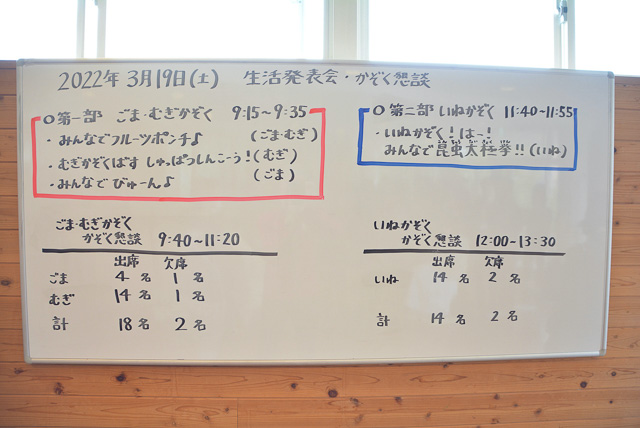 2022年 3月19日(土) 生活発表会・かぞく懇談
○第一部 ごま・むぎかぞく 9:15～9:35
・みんなでフルーツポンチ♪ (ごま・むぎ)
・むぎかぞくばす しゅっぱつしんこーう!(むぎ)
・みんなで びゅーん♪ (ごま)
○第二部 いねかぞく 11:40～11:55
・いねかぞく!はー!
みんなで昆虫太極拳!!(いね)
ごま・むぎかぞく
かぞく懇談 9:40～11:20
出席 欠席
ごま 4名 1名
むぎ 14名 1名
計 18名 2名
いねかぞく
かぞく懇談 12:00-13:30
出席 欠席
いね 14名 2名
計 14名 2名